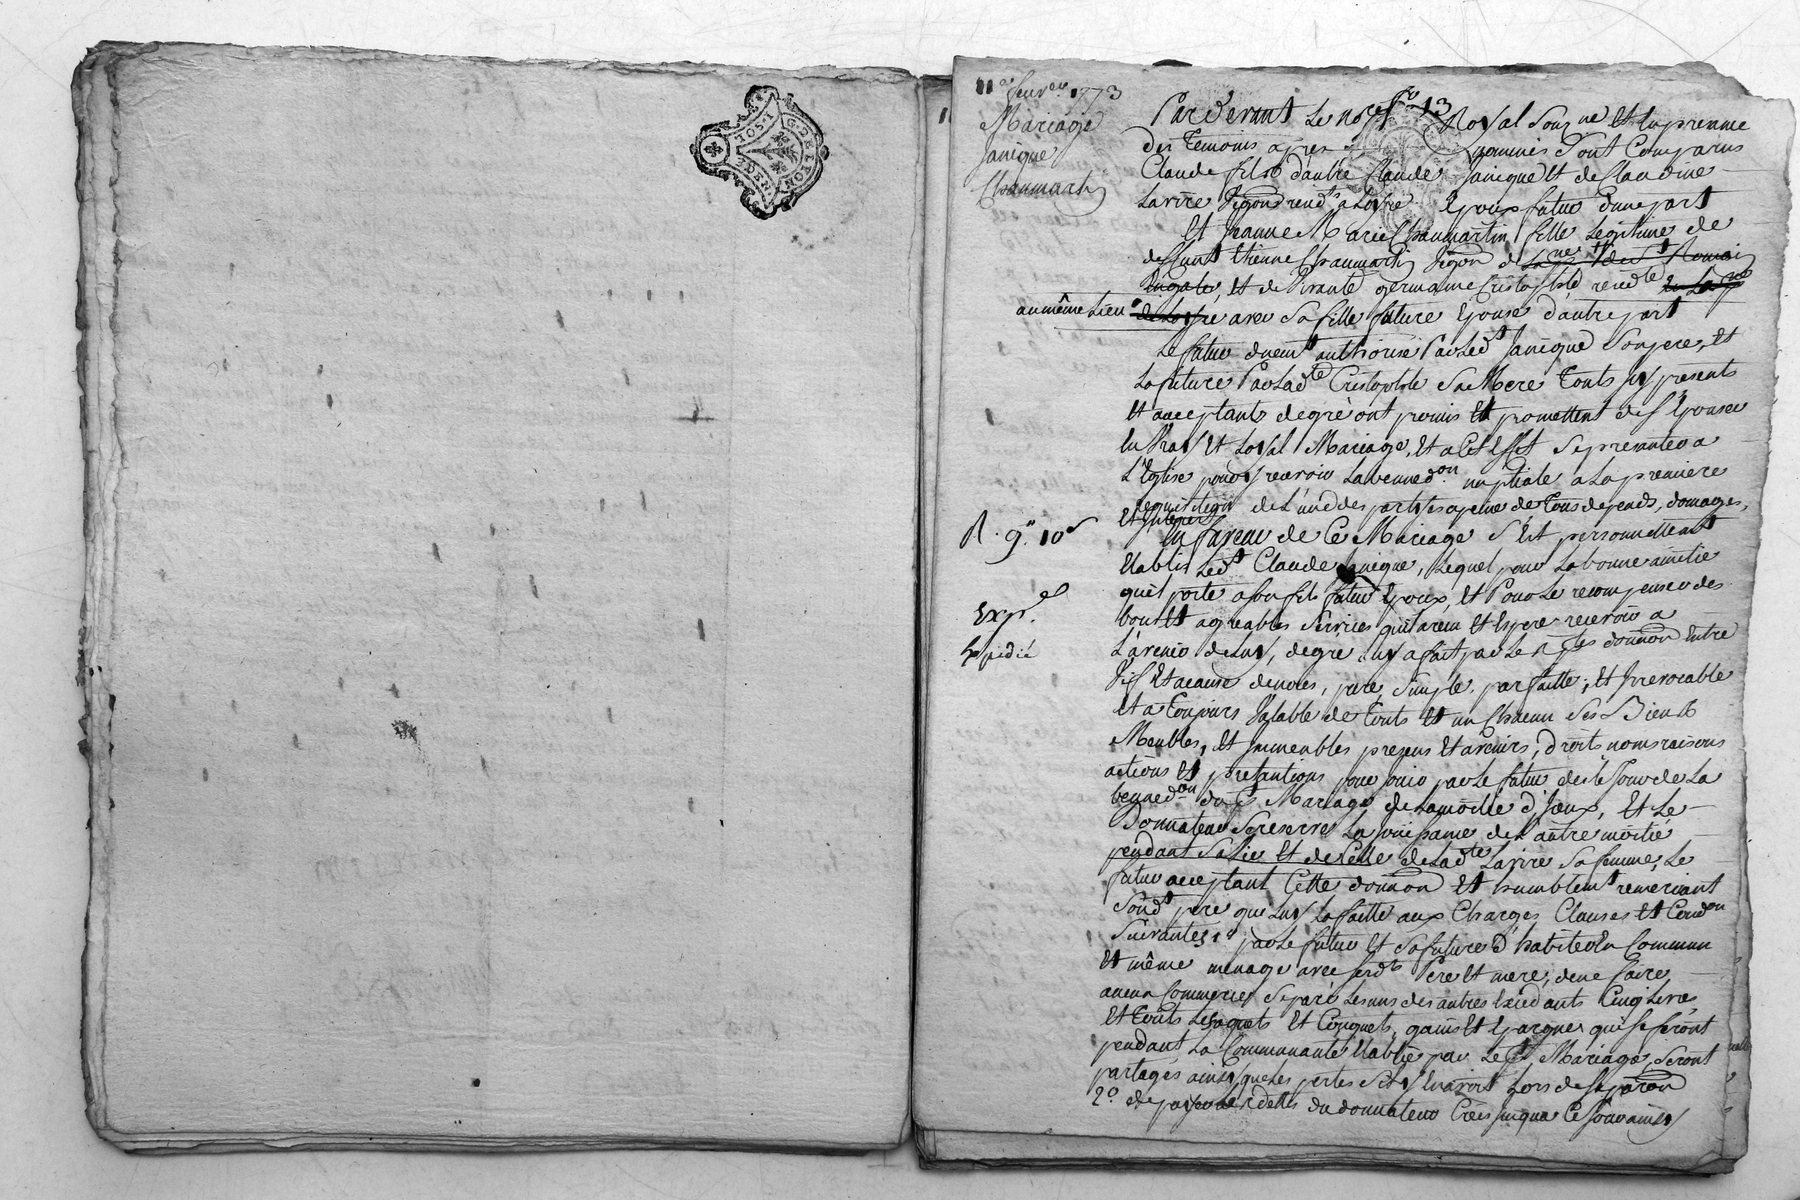 G. DE LYON
2. SOLS
11e fevrer 1773
Mariage
Janique
Chaumartin
Par devant Le no.re Royal Soug.ne Et En presence
des Temoins apres nommés Sont Comparus
Claude fils d'autre Claude Janique Et de Claudine
Larire
Epoux futur d'une part
Et Jeanne Marie Chaumartin fille Legitime de
deffunt Etienne Chaumartin
Et de vivante germaine Cristophle
au même Lieu
avec Sa fille future Epouse d'autre part
Le futur duem.t authorisé Par Led.t Janique Son pere, Et
La future Par Lad.te Cristophle Sa Mere Touts icy presents
Et acceptants de gré ont promis Et promettent de S'Epouser
En vray Et Loyal Mariage, Et a Cet Effet Se presenter a
L'Eglise pour y recevoir La benned.on nuptiale a La premiere
requisition de L'une des parties a peine de Tous depends, domages,
Et Interets
R. 9.# 10s
En faveur de Ce Mariage S'Est personnellement
Etabli Led.t Claude Janique, Lequel pour La bonne amitié
qu'il porte a Son fils futur Epoux, Et Pour Le recompenser des
Exp.é
bons Et agreables Services qu'il a reçu Et Espere recevoir a
Expedié
L'avenir de Luy, de gré a fait par Le donnaon Entre
vif Et a cause de noces, pure, Simple, parfaitte, Et Irrevocable
Et a Toujours valable de Touts Et un Chacun Ses Biens
Meubles, Et Immeubles presens Et avenirs, droits noms raisons
actions Et pretantions pour Jouir par Le futur dès le Jour de La
benned.on du p.t Mariage de La moitié d'Iceux, Et Le
Donnateur Se reserve La Jouissance de L'autre moitié
pendant Sa vie Et de Celle de Lad.te Larire Sa femme, Le
futur acceptant Cette donnaon Et humblem.t remerciant
Sond.t pere que Luy a faitte aux Charges Clauses Et Cond.on
Suivantes 1o par Le futur Et Sa future d'habiter En Commun
Et même menage avec Sesd.ts Pere Et mere, de ne faire
aucun Commerce Separé Les uns des autres Excedants Cinq Livres
Et Touts Les acquets Et Conquets, gains Et Epargnes qui Se feront
pendant La Communauté Etablie par Le p.t Mariage, Seront
partagés ainsy que Les pertes S'il y En avoit Lors de Separaon
2o de payer Les dettes du donnateur Créés Jusqu'a Ce Jour